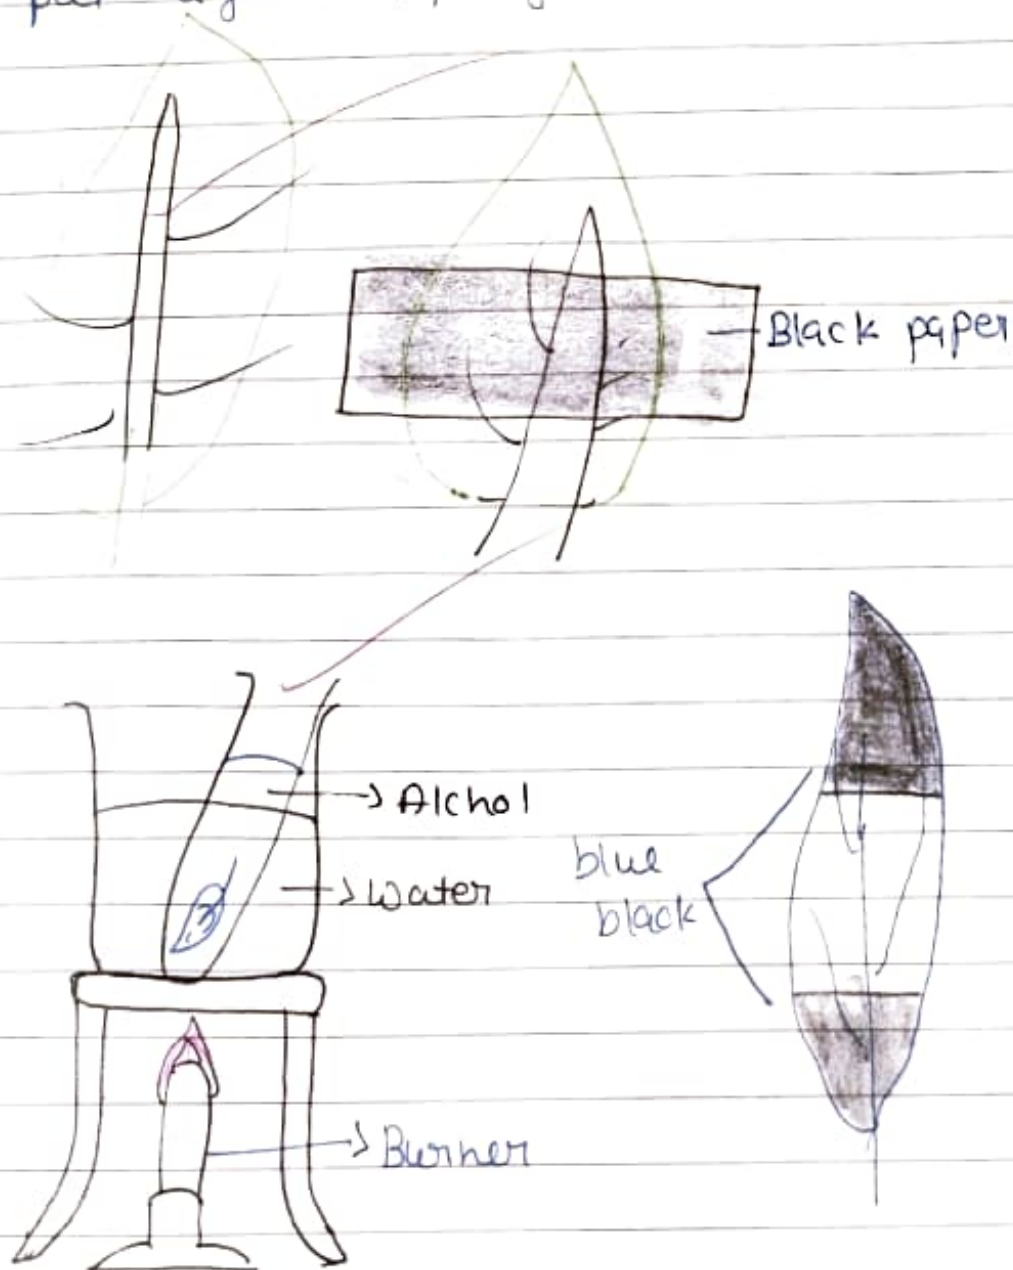 Black paper
Alchol
Water
blue
black
Burner